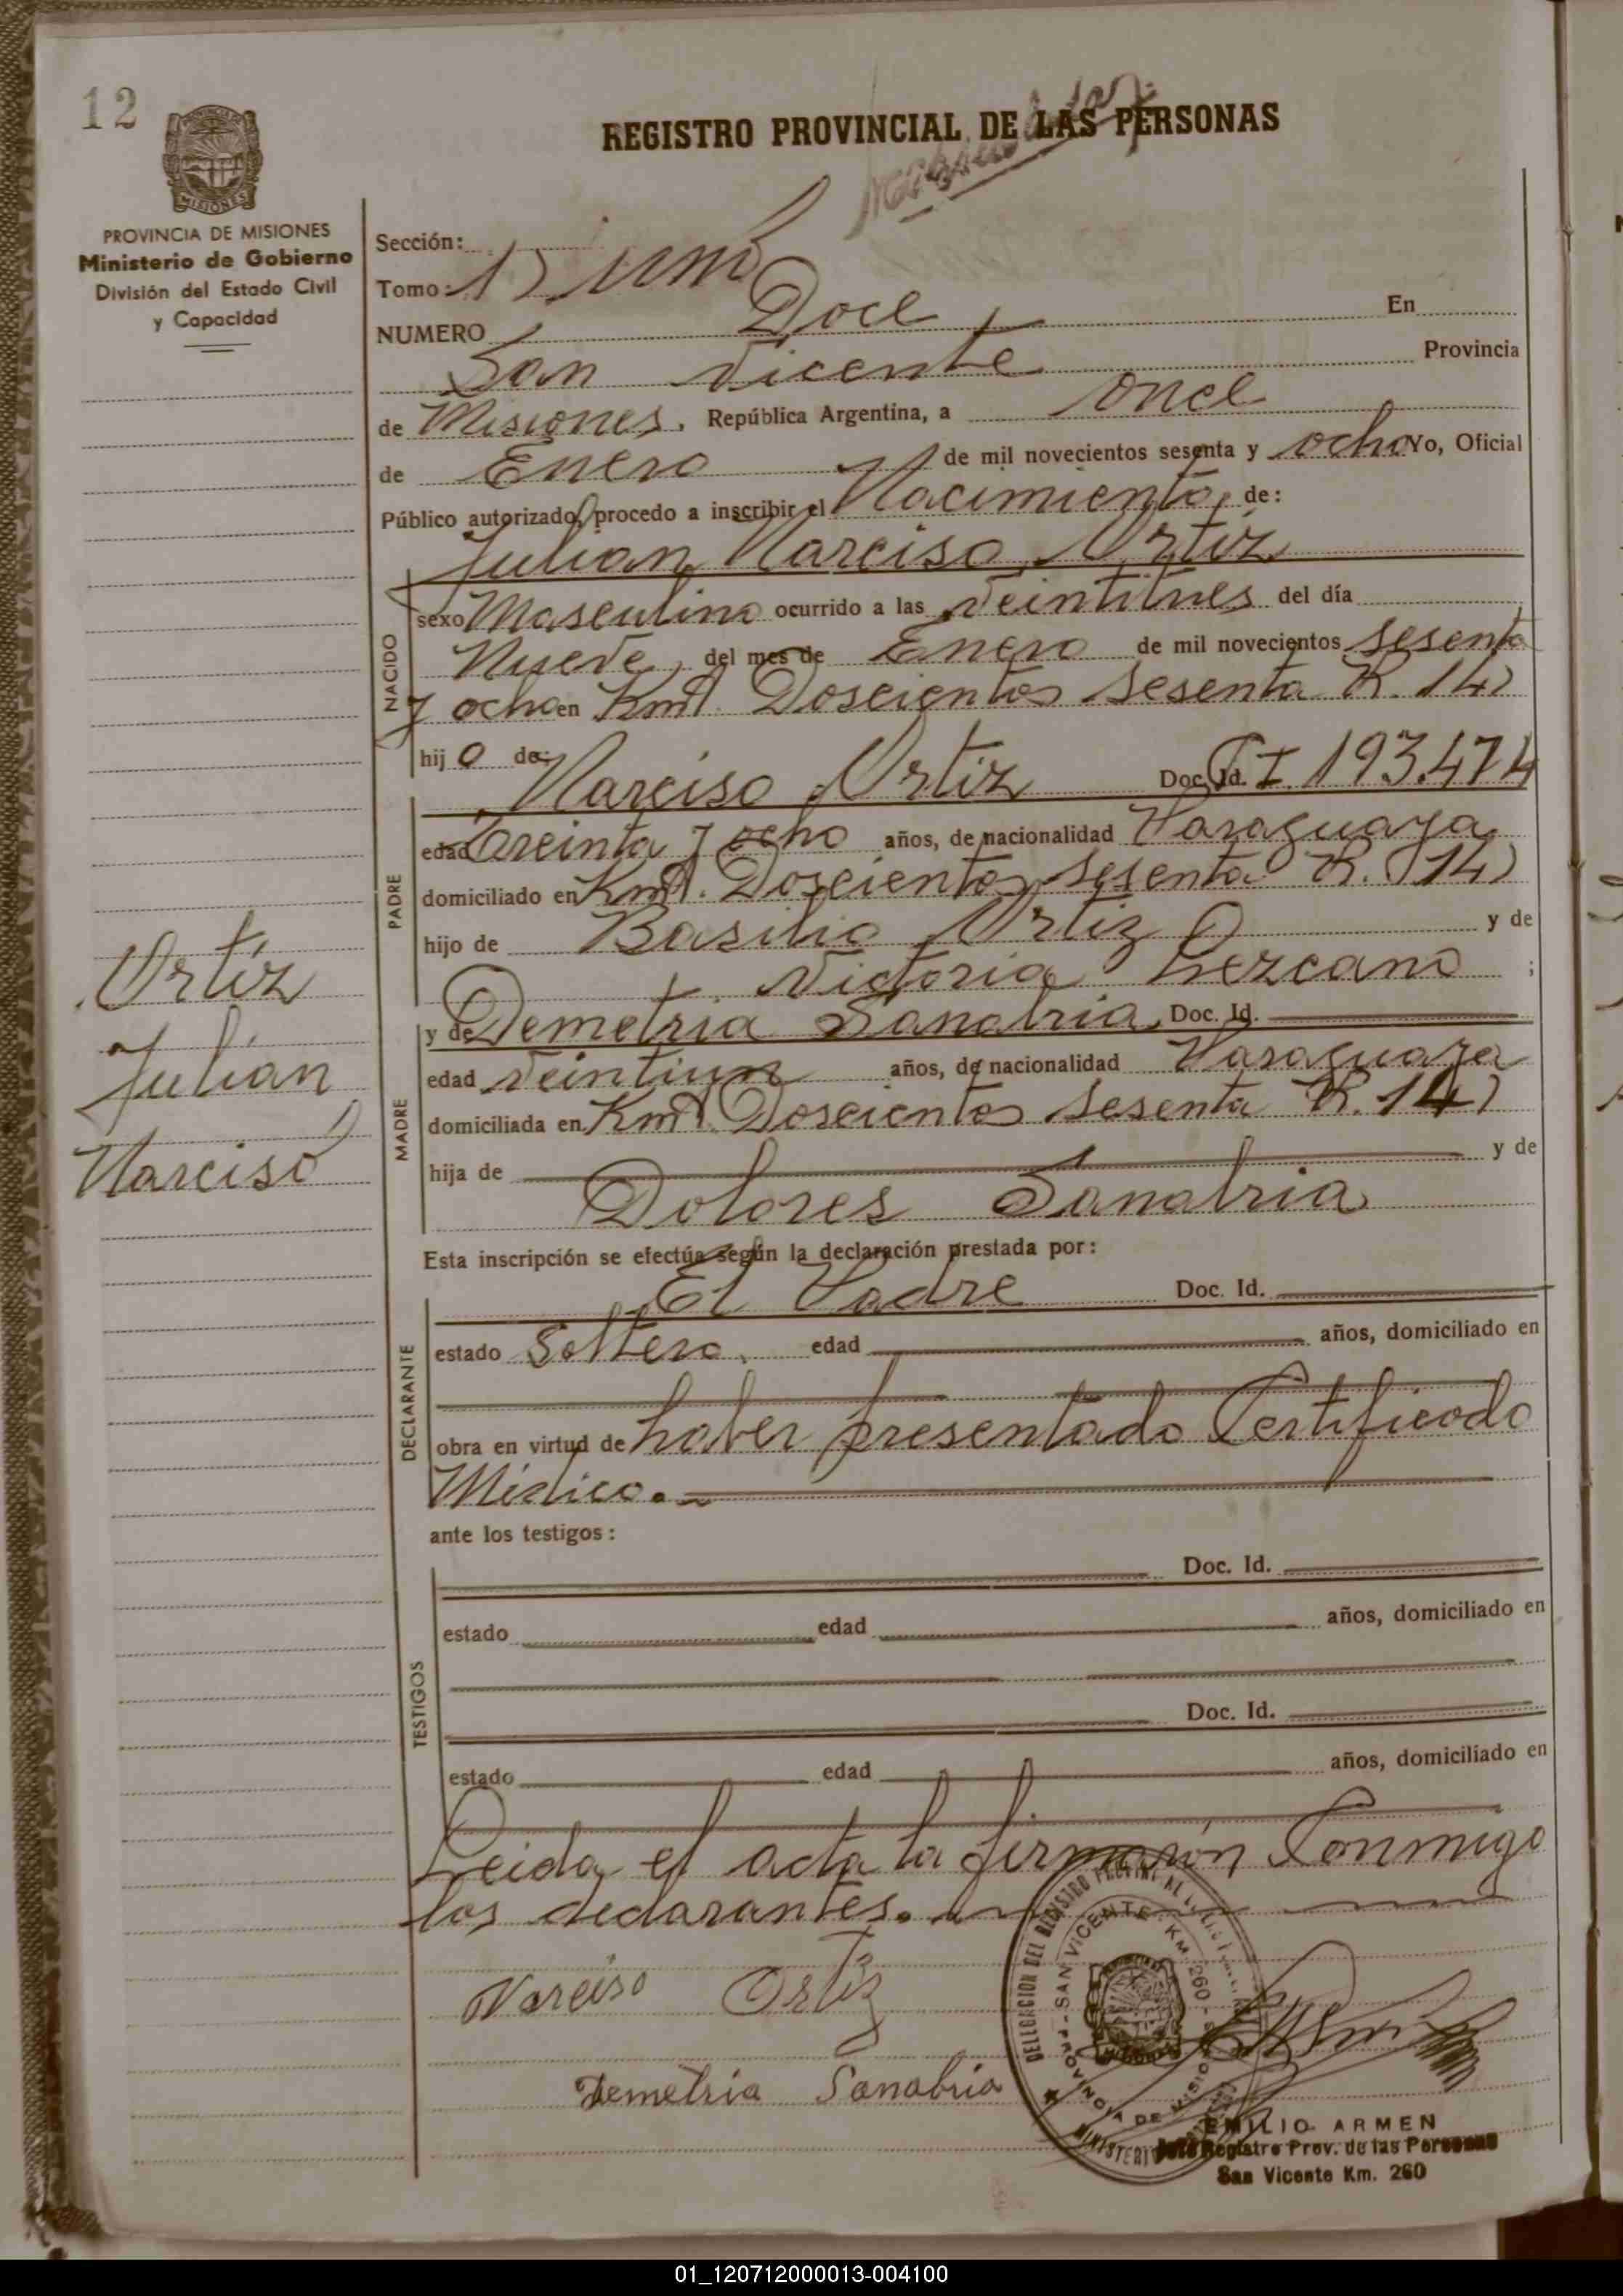 12
REGISTRO PROVINCIAL DE LAS PERSONAS
PROVINCIA DE MISIONES
Ministerio de Gobierno
División del Estado Civil
y Capacidad
Sección:
Tomo: 1) uno
NUMERO Doce En
San Vicente Provincia
de Misiones, República Argentina, a once
de Enero de mil novecientos sesenta y ocho Yo, Oficial
Público autorizado, procedo a inscribir el Nacimiento, de:
Julian Narciso Ortiz
NACIDO
sexo Masculino ocurrido a las veintitres del día
Nueve, del mes de Enero de mil novecientos sesenta
y ocho en Kmt. Doscientos sesenta R. 14)
hijo de: Narciso Ortiz Doc. Id. C I 193.474
PADRE
edad treinta y ocho años, de nacionalidad Paraguaya
domiciliado en Kmt. Doscientos sesenta R. 14)
hijo de Basilio Ortiz y de
Victoria Lezcano ;
y de Demetria Sanabria, Doc. Id.
MADRE
edad veintiun años, de nacionalidad Paraguaya
domiciliada en Kmt. Doscientos sesenta R. 14)
hija de y de
Dolores Sanabria
Ortiz
Julian
Narciso
Esta inscripción se efectúa según la declaración prestada por:
El Padre Doc. Id.
DECLARANTE
estado Soltero. edad años, domiciliado en
obra en virtud de haber presentado Certificado
Médico.
ante los testigos:
Doc. Id.
TESTIGOS
estado edad años, domiciliado en
Doc. Id.
estado edad años, domiciliado en
Leida el acta la firmaron Conmigo
los declarantes.
Narciso Ortiz
Demetria Sanabria
DELEGACION DEL REGISTRO PROVINCIAL
SAN VICENTE KM 260
PROVINCIA DE MISIONES
MINISTERIO
EMILIO ARMEN
Jefe Registro Prov. de las Personas
San Vicente Km. 260
01_120712000013-004100